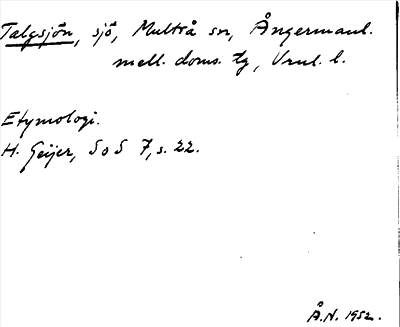 Talgsjön, sjö, Multrå sn, Ångermanl.
mell. doms. tg, l.
Etymologi.
H. Geijer, S o S 7, s. 22.
Å.N. 1952.